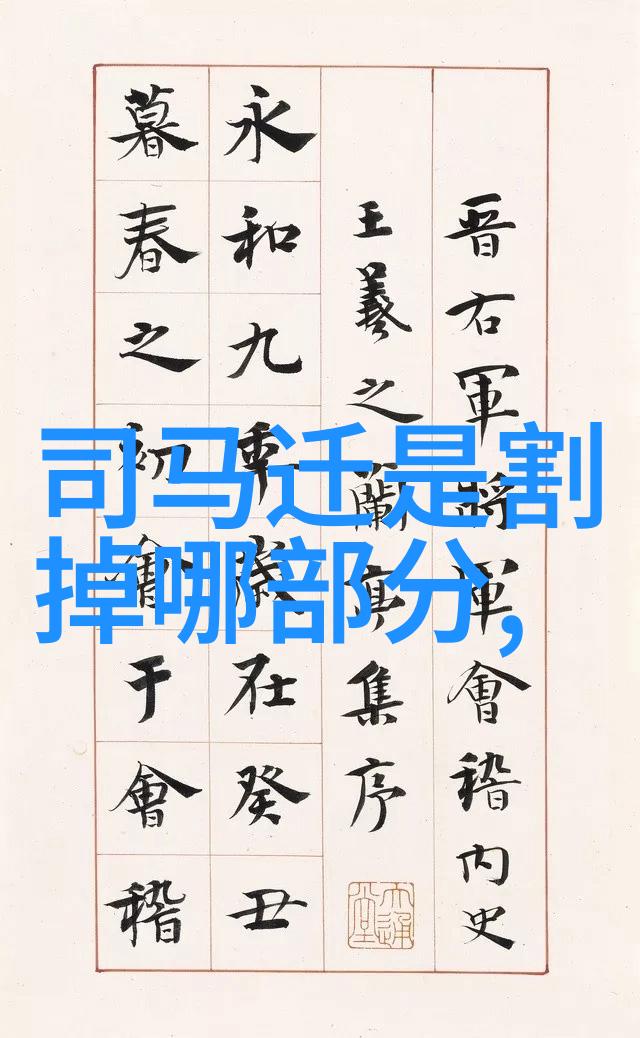 司马迁是割
掉哪部分,
晋右軍將軍會稽内史
王羲之蘭亭集序
永和九年歲在癸丑
暮春之初會于會稽